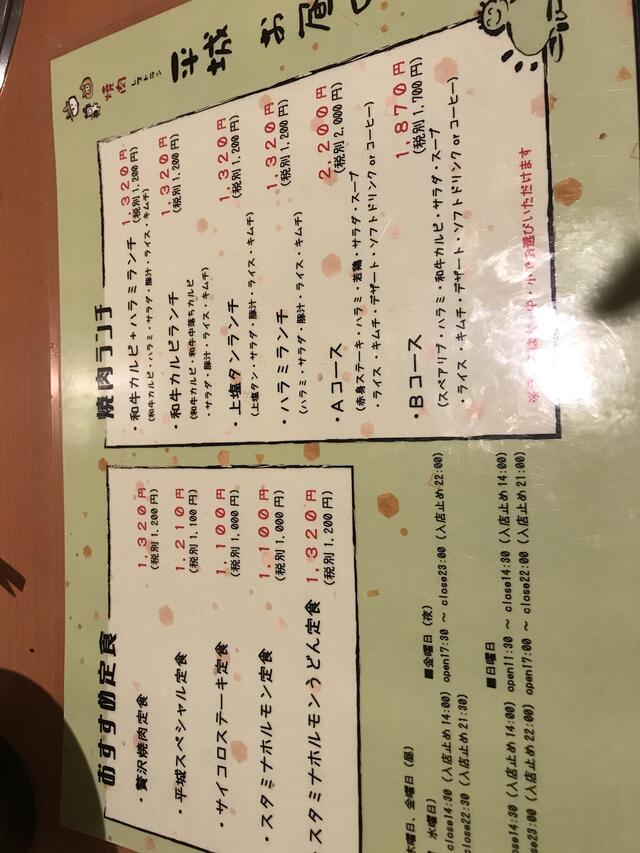 焼肉
レストラン
平城 お昼の
おすすめ定食
・贅沢焼肉定食 1,320円
(税別1,200円)
・平城スペシャル定食 1,210円
(税別1,100円)
・サイコロステーキ定食 1,100円
(税別1,000円)
・スタミナホルモン定食 1,100円
(税別1,000円)
・スタミナホルモンうどん定食 1,320円
(税別1,200円)
焼肉ランチ
・和牛カルビ+ハラミランチ 1,320円
(税別1,200円)
(和牛カルビ・ハラミ・サラダ・豚汁・ライス・キムチ)
・和牛カルビランチ 1,320円
(税別1,200円)
(和牛カルビ・和牛中落ちカルビ
・サラダ・豚汁・ライス・キムチ)
・上塩タンランチ 1,320円
(税別1,200円)
(上塩タン・サラダ・豚汁・ライス・キムチ)
・ハラミランチ 1,320円
(税別1,200円)
(ハラミ・サラダ・豚汁・ライス・キムチ)
・Aコース 2,200円
(税別2,000円)
(赤身ステーキ・ハラミ・若鶏・サラダ・スープ
・ライス・キムチ・デザート・ソフトドリンク or コーヒー)
・Bコース 1,870円
(税別1,700円)
(スペアリブ・ハラミ・和牛カルビ・サラダ・スープ
・ライス・キムチ・デザート・ソフトドリンク or コーヒー)
中・小でお選びいただけます
木曜日、金曜日(昼)
close14:30(入店止め14:00)
水曜日)
close22:30(入店止め21:30)
close14:30(入店止め14:00)
close23:00(入店止め22:00)
■金曜日(夜)
open17:30 ～ close23:00(入店止め22:00)
■日曜日
open11:30 ～ close14:30(入店止め14:00)
open17:00 ～ close22:00(入店止め21:00)